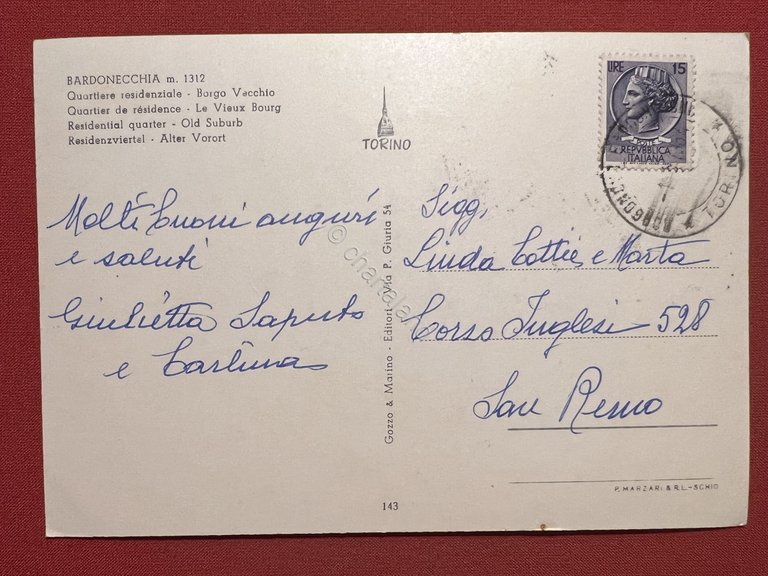 BARDONECCHIA m. 1312
Quartiere residenziale - Borgo Vecchio
Quartier de résidence - Le Vieux Bourg
Residential quarter - Old Suburb
Residenzviertel - Alter Vorort
TORINO
LIRE 15
POSTE
REPVBBLICA
ITALIANA
TORINO
Molti buoni auguri
e saluti
Giulietta Saputo
e Carlina
Gozzo & Marino - Editori Via P. Giuria 54
Sigg,
Linda Cotties e Marta
Corso Inglesi 528
San Remo
P. MARZARI S.R.L.-SCHIO
143